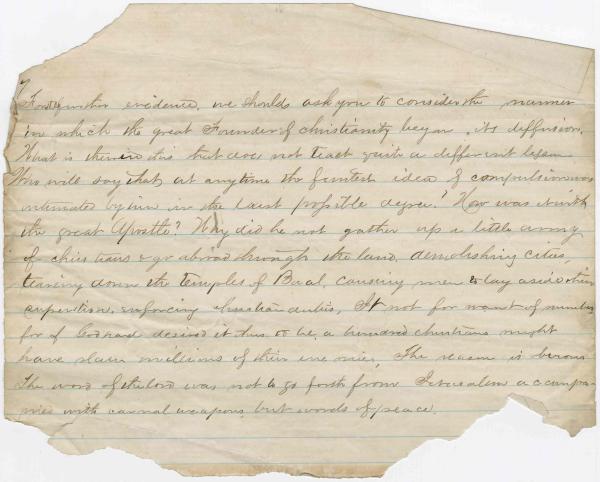 For further evidence, we should ask you to consider the manner
in which the great Founder of christianity began its diffusion.
What is there in this that does not teach quite a different lesson
Who will say that at anytime the faintest idea of compulsion was
intimated by him in the least possible degree? How was it with
the great Apostle? Why did he not gather up a little army
of christians & go abroad through the land, demolishing cities,
tearing down the temples of Baal, causing men to lay aside their
superstition, enforcing christian duties, It not for want of numbers
for if God had desired it thus to be, a hundred christians might
have slain millions of their enemies, The reason is
The word of the Lord was not to go forth from Jerusalem accompa-
nied with carnal weapons, but words of peace.